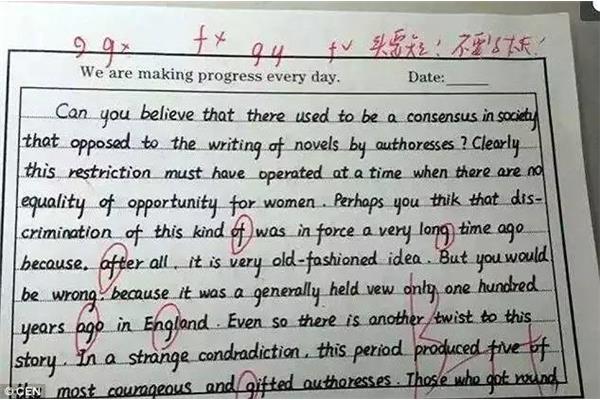 g g× f× g y f√ 不要
We are making progress every day. Date:
Can you believe that there used to be a consensus in society
that opposed to the writing of novels by authoresses? Clearly
this restriction must have operated at a time when there are no
equality of opportunity for women. Perhaps you thik that dis-
crimination of this kind of was in force a very long time ago
because, after all, it is very old-fashioned idea. But you would
be wrong: because it was a generally held vew only one hundred
years ago in England. Even so there is another twist to this
story. In a strange condradiction, this period produced five of
most courageous and gifted authoresses. Those who got round
© CEN